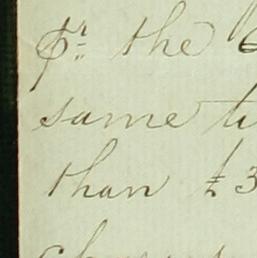 pr. the
same ti
than £3